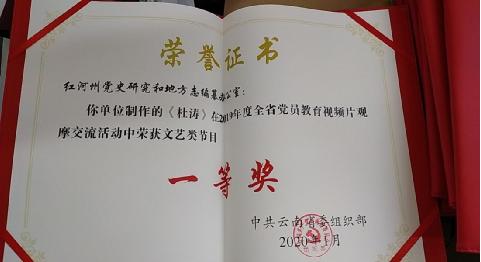 荣誉证书
红河州党史研究和地方志编纂办公室：
你单位制作的《杜涛》在2019年度全省党员教育视频片观
摩交流活动中荣获文艺类节目
一等奖
中共云南省委组织部
2020年1月